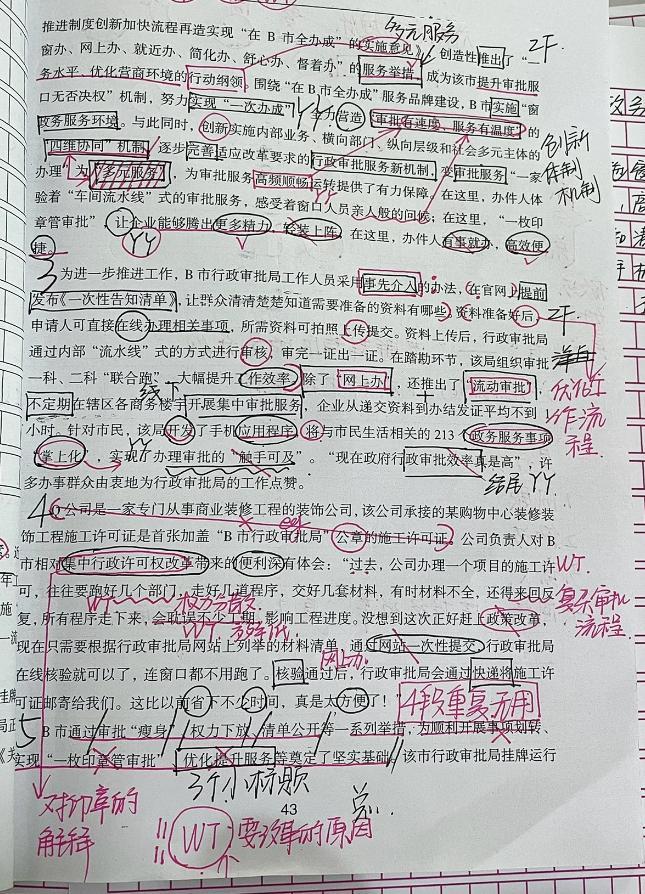 推进制度创新加快流程再造实现“在 B 市全办成”的实施意见》，创造性推出了“一
窗办、网上办、就近办、简化办、舒心办、督着办”的服务举措，成为该市提升审批服
务水平、优化营商环境的行动纲领。围绕“在B市全办成”服务品牌建设，B市实施“窗
口无否决权”机制，努力实现“一次办成”，全力营造“审批有速度、服务有温度”的
政务服务环境。与此同时，创新实施内部业务、横向部门、纵向层级和社会多元主体的
“四维协同”机制，逐步完善适应改革要求的行政审批服务新机制，变审批服务“一家
办理”为“多元服务”，为审批服务高频顺畅运转提供了有力保障。在这里，办件人体
验着“车间流水线”式的审批服务，感受着窗口人员亲人般的问候；在这里，“一枚印
章管审批”，让企业能够腾出更多精力，轻装上阵。在这里，办件人有事就办，高效便
捷。
多元服务
ZF
创新
体制
机制
YY
3
为进一步推进工作，B市行政审批局工作人员采用事先介入的办法，在官网上提前
发布《一次性告知清单》，让群众清清楚楚知道需要准备的资料有哪些，资料准备好后，
申请人可直接在线办理相关事项，所需资料可拍照上传提交。资料上传后，行政审批局
通过内部“流水线”式的方式进行审核，审完一证出一证。在踏勘环节，该局组织审批
一科、二科“联合跑”，大幅提升工作效率。除了“网上办”，还推出了“流动审批”，
不定期在辖区各商务楼宇开展集中审批服务，企业从递交资料到办结发证平均不到
小时。针对市民，该局开发了手机应用程序，将与市民生活相关的 213 个政务服务事项
“掌上化”，实现了办理审批的“触手可及”。“现在政府行政审批效率真是高”，许
多办事群众由衷地为行政审批局的工作点赞。
ZF
优化工
作流
程
线下
YY
结尾YY
4
公司是一家专门从事商业装修工程的装饰公司，该公司承接的某购物中心装修装
饰工程施工许可证是首张加盖“B市行政审批局”公章的施工许可证。公司负责人对 B
市相对集中行政许可权改革带来的便利深有体会：“过去，公司办理一个项目的施工许
可，往往要跑好几个部门，走好几道程序，交好几套材料，有时材料不全，还得来回反
复，所有程序走下来，会耽误不少工期，影响工程进度。没想到这次正好赶上政策改革，
现在只需要根据行政审批局网站上列举的材料清单，通过网站一次性提交，行政审批局
在线核验就可以了，连窗口都不用跑了。核验通过后，行政审批局会通过快递将施工许
可证邮寄给我们。这比以前省下不少时间，真是太方便了！”
WT.
复杂审批
流程
WT
权力分散
WT 效率低
网上办
4段重复无用
5
B市通过审批“瘦身”、权力下放、清单公开等一系列举措，为顺利开展事项划转、
实现“一枚印章管审批”、优化提升服务等奠定了坚实基础。该市行政审批局挂牌运行
3个小标题
43
总
对印章的
解释
WT 要改革的原因